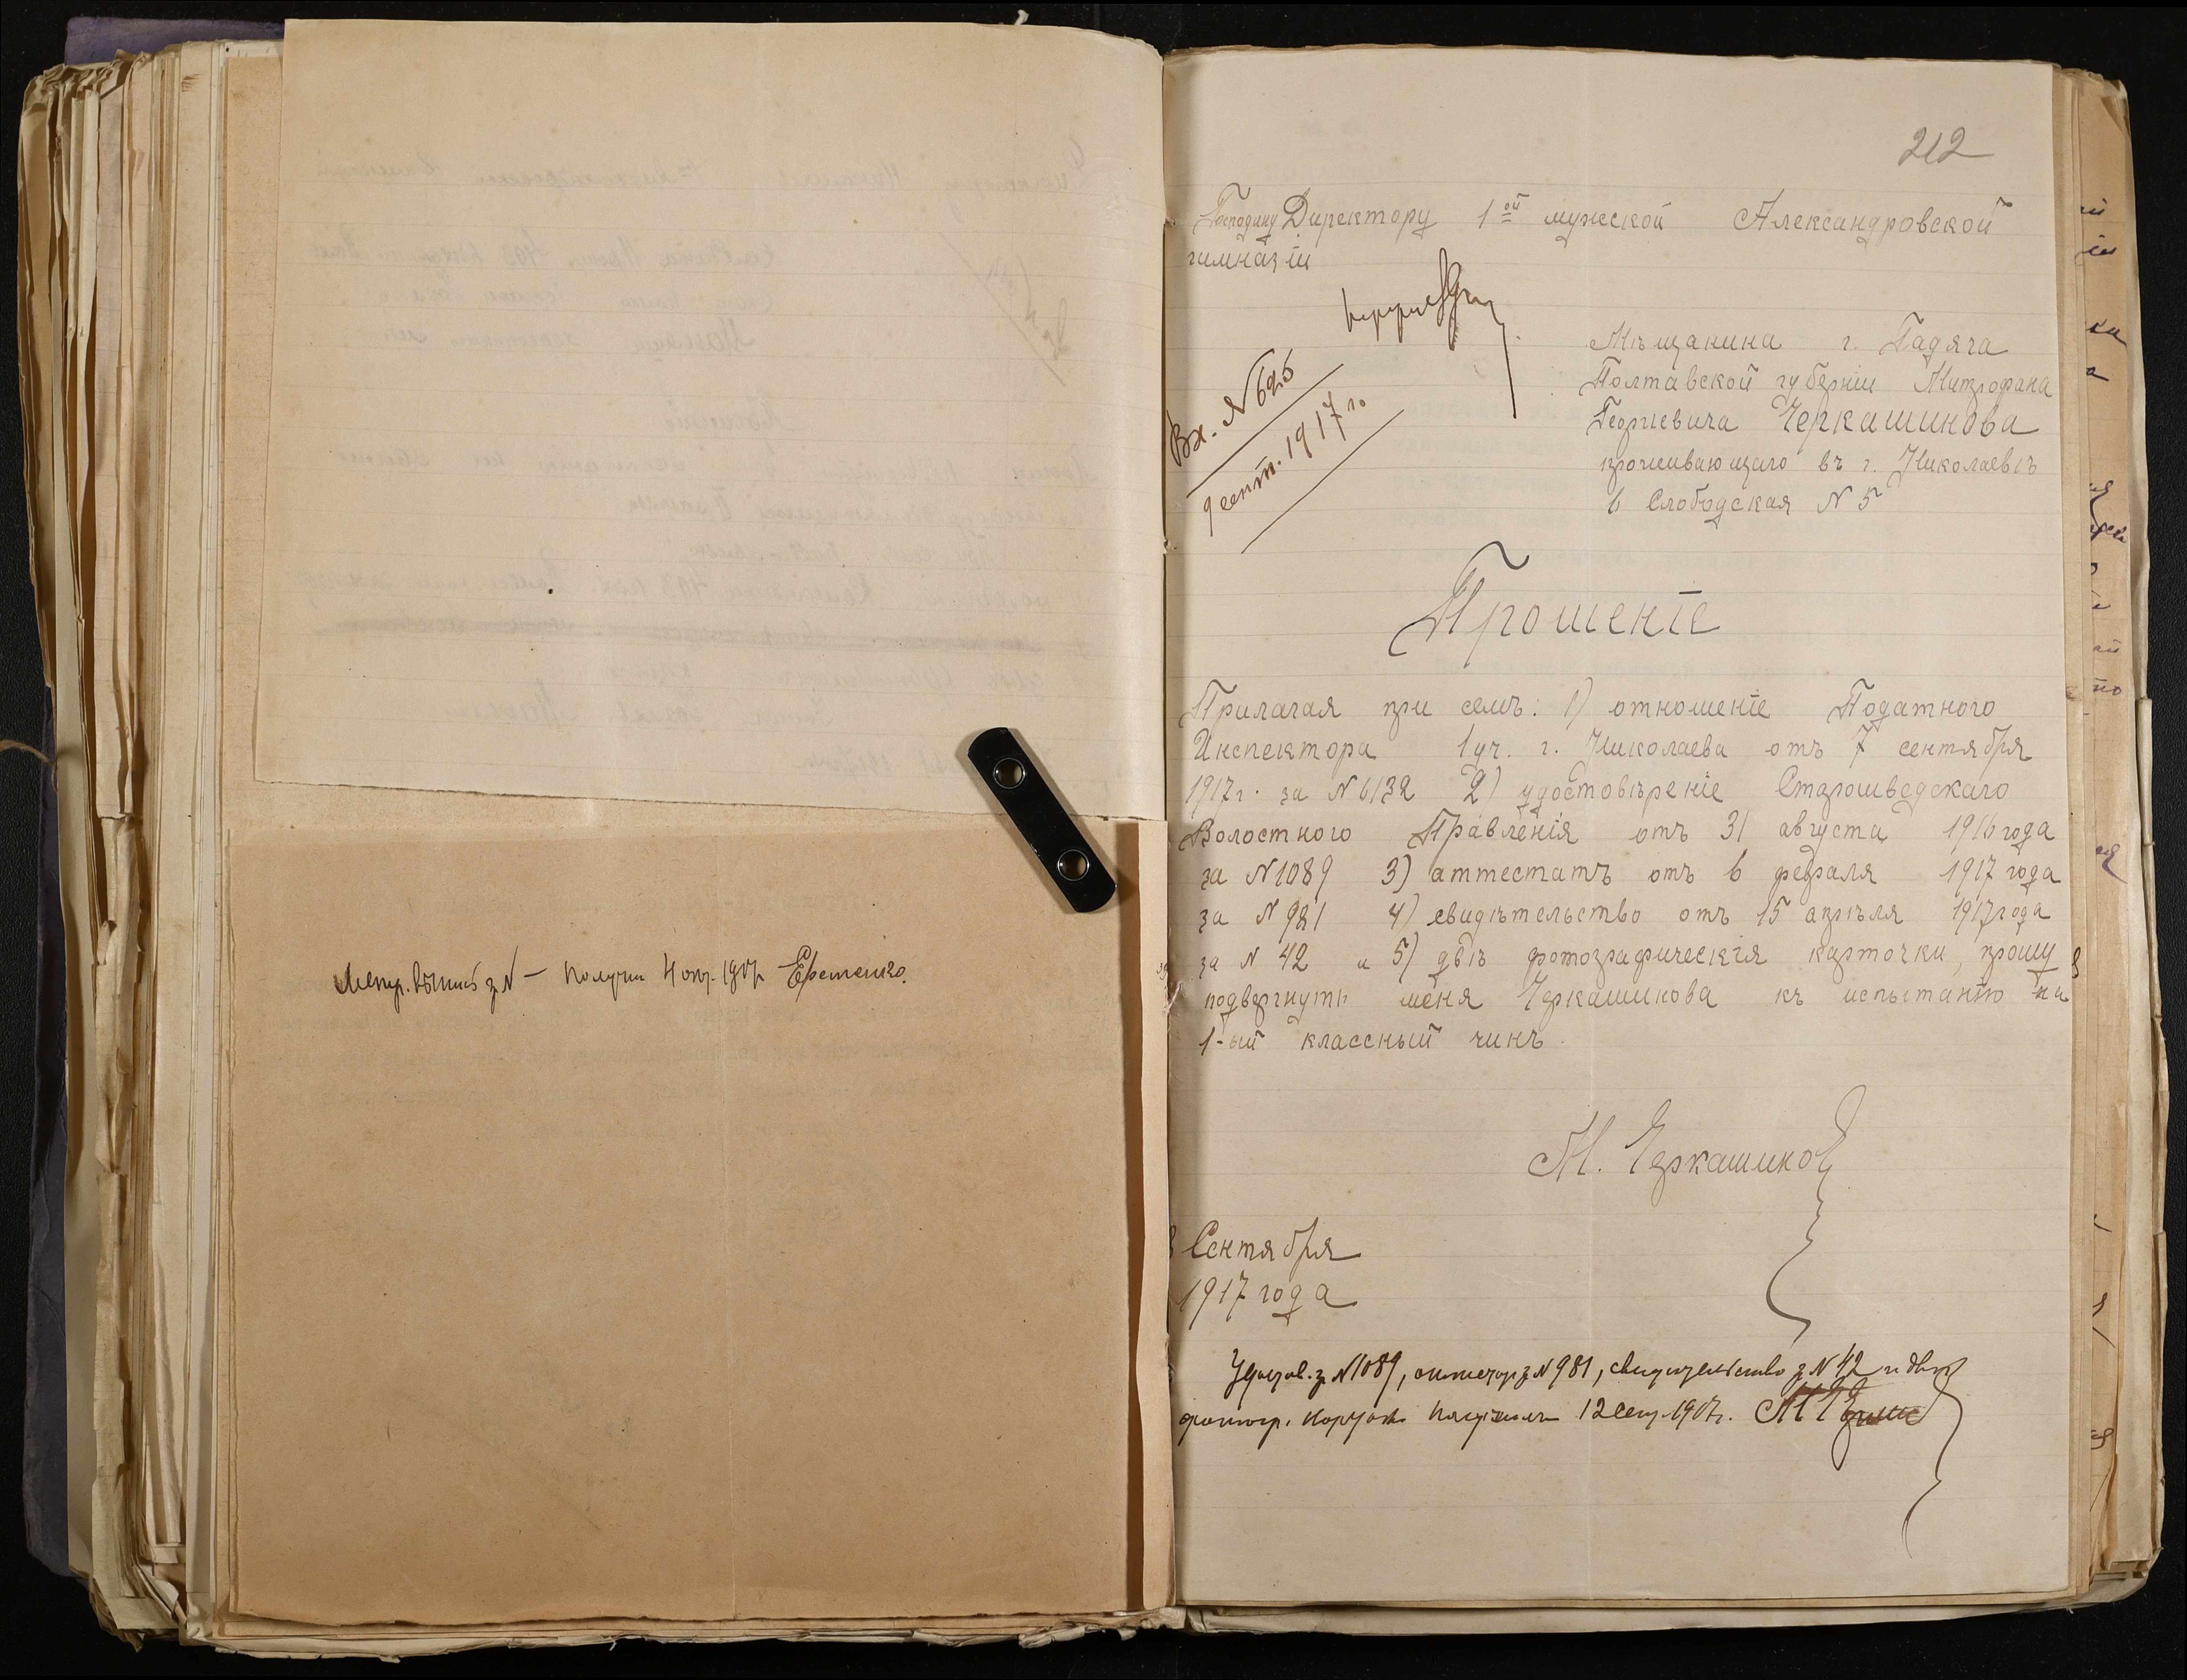 Метр. выпись з. № — получи 4 окт. 1917 Еременко.
212
Господину Директору 1ой мужской Александровской
гимназіи
Вх. № 625
9 сент. 1917 го
Мѣщанина г. Гадяча
Полтавской губерніи Митрофана
Георгіевича Черкашинова
проживающаго въ г. Николаевѣ
6 Слободская № 5
Прошеніе
Прилагая при семъ: 1) отношеніе Податного
Инспектора 1 уч. г. Николаева отъ 7 сентября
1917 г. за № 6132 2) удостовѣреніе Старошведскаго
Волостного Правленія отъ 31 августа 1916 года
за № 1089 3) аттестатъ отъ 6 февраля 1917 года
за № 981 4) свидѣтельство отъ 15 апрѣля 1917 года
за № 42 и 5) двѣ фотографическія карточки, прошу
подвергнуть меня Черкашинова къ испытанію на
1-ый классный чинъ.
М. Черкашинов
Сентября
1917 года
Удостов. з. № 1089, аттестат з. № 981, свидетельство з. № 42 и две
фотогр. карточки получил 12 сент. 1917 г.